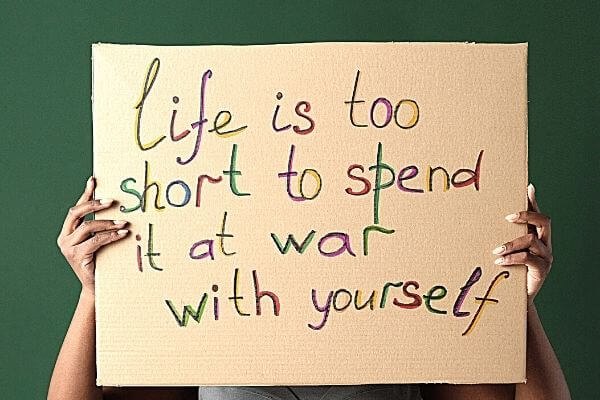 life is too
short to spend
it at war
with yourself